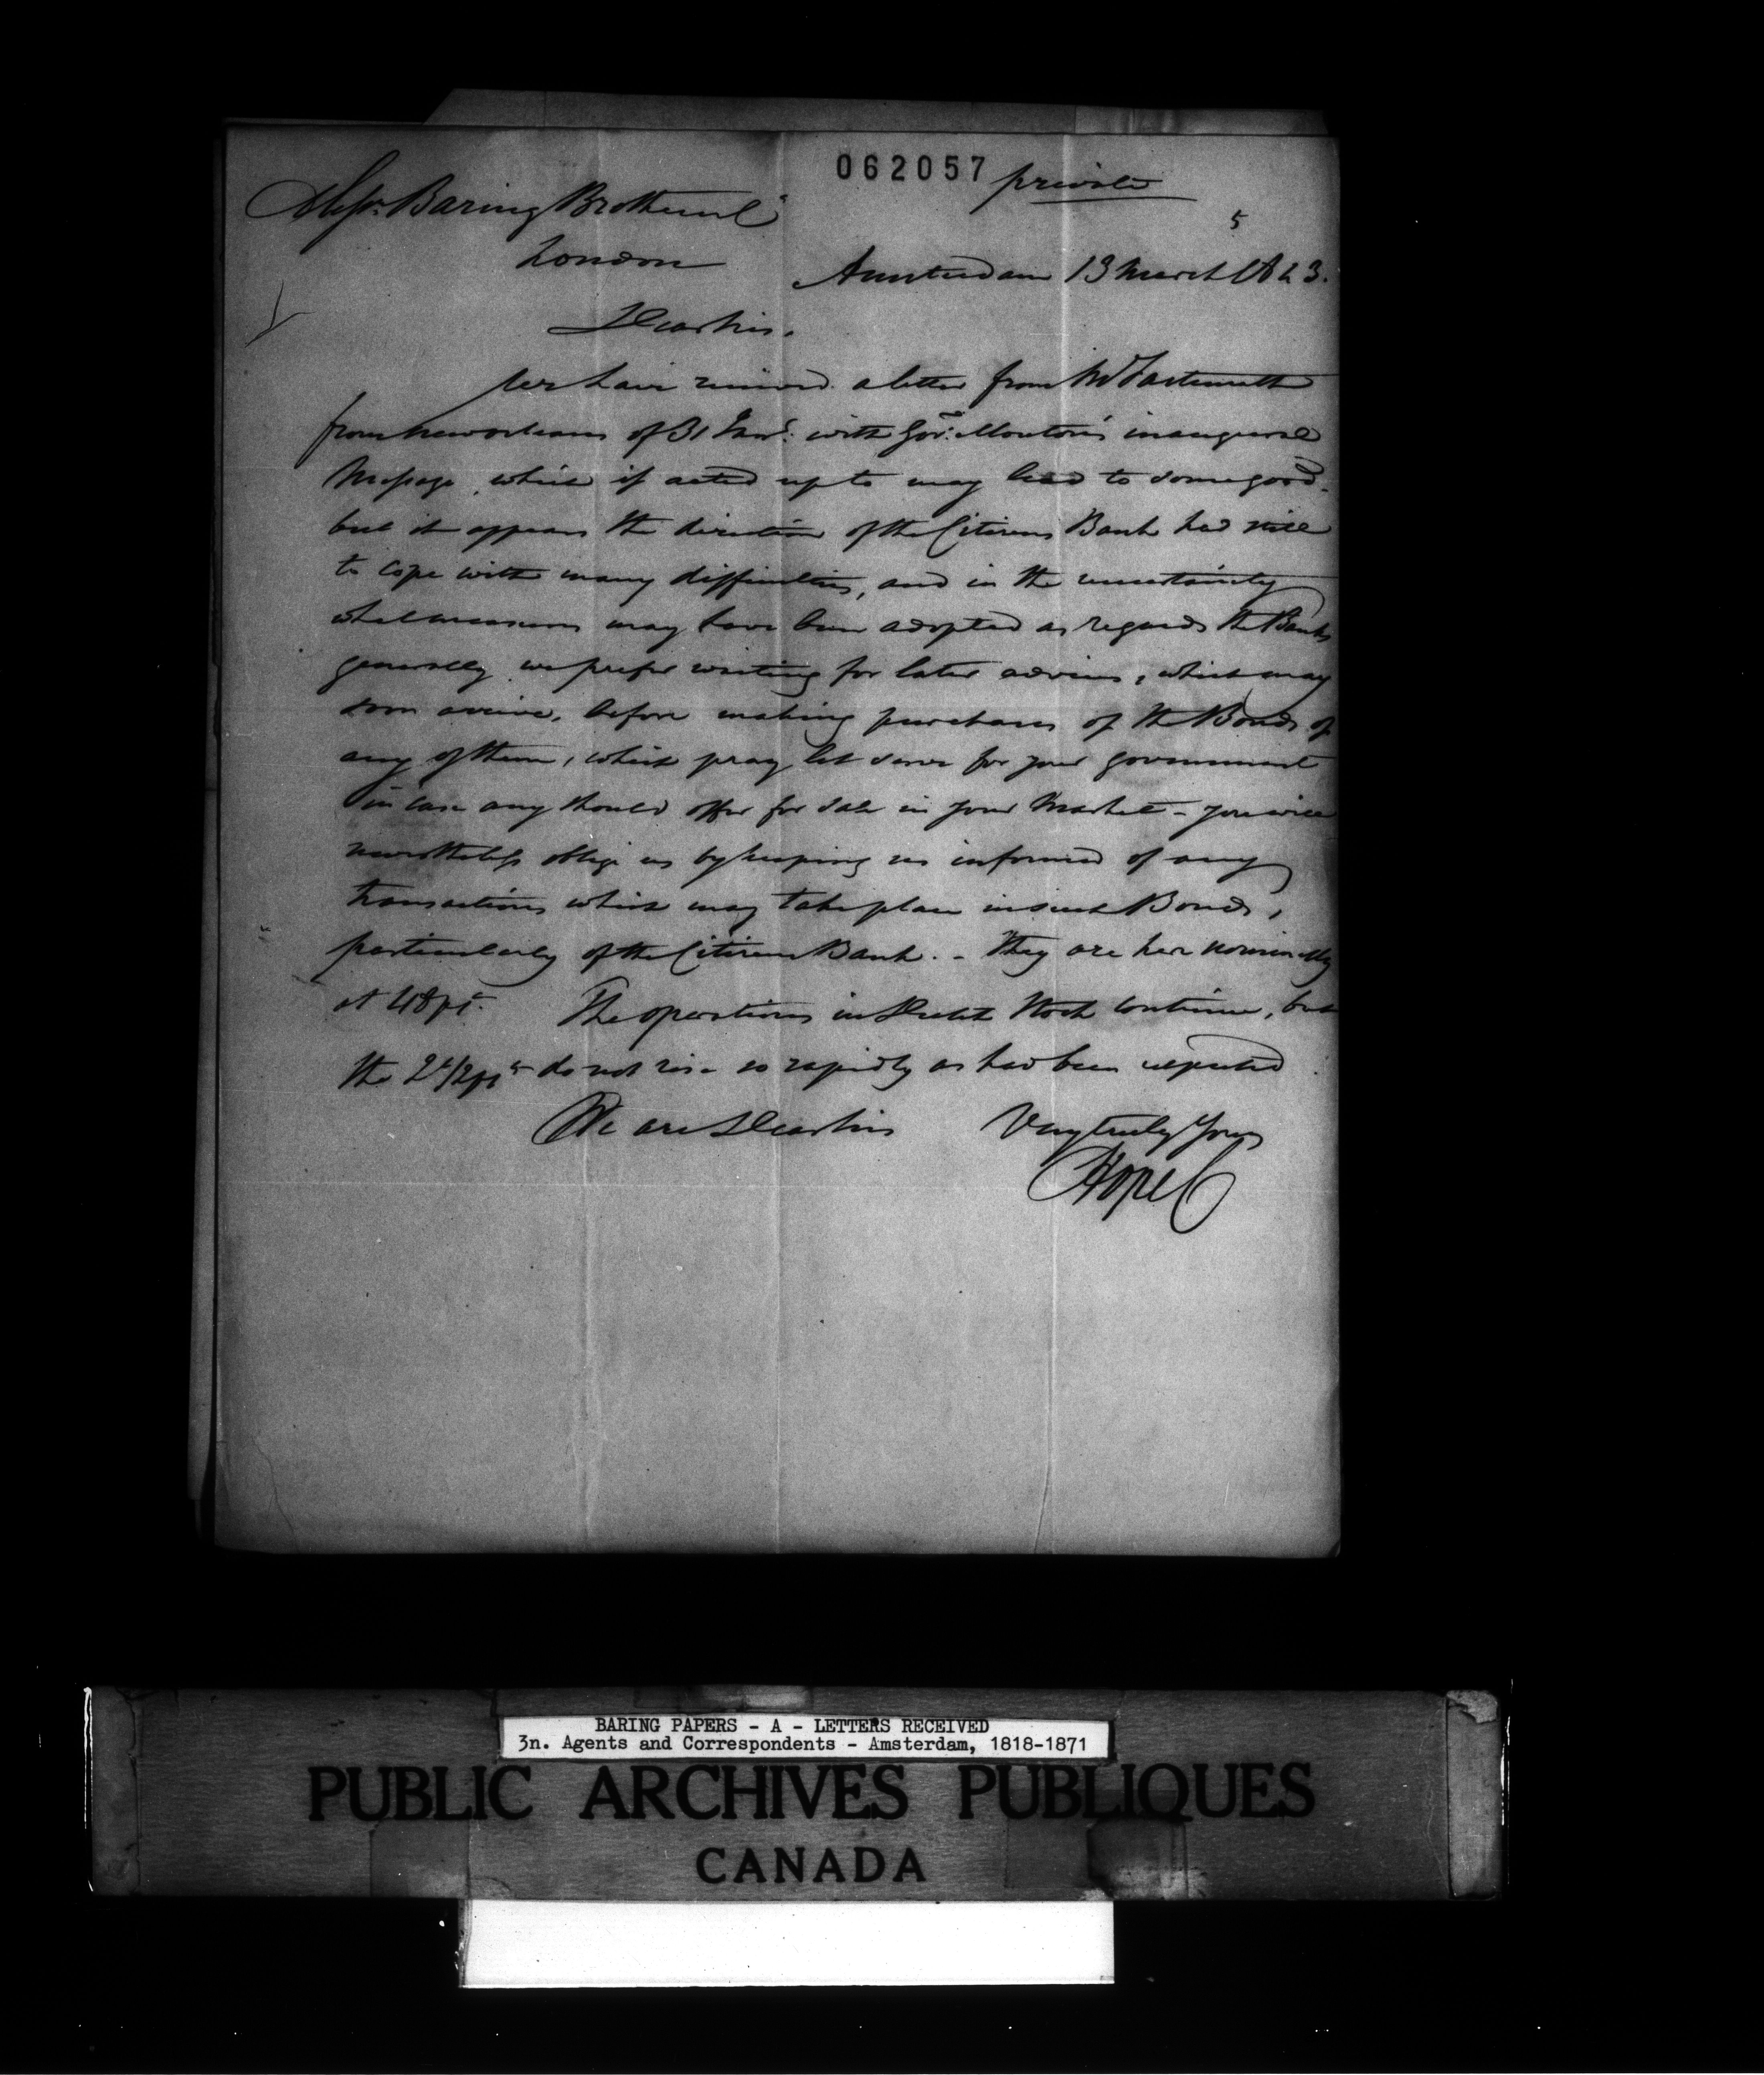 062057 private
Messrs. Baring Brothers & Co
5
London
Amsterdam 13 March 1843.
Dear Sirs.
We have received a letter from Mr
from New Orleans of 31 Janr. with Govr. Mouton's inaugural
Message, which if acted up to may lead to some good.
but it appears the direction of the Citizens Bank had still
to cope with many difficulties, and in the uncertainty
what measures may have been adopted as regards the Banks
generally we prefer waiting for later advices, which may
soon arrive, before making purchases of the Bonds of
any of them, which pray let serve for your government
in case any should offer for sale in your Market - you will
nevertheless oblige us by keeping us informed of any
transactions which may take place in such Bonds,
particularly of the Citizens Bank. - They are here nominally
at 48 pct. The operations in Dutch Stock continue, but
the 2 1/2 pcts do not rise so rapidly as had been expected.
We are Dear Sirs Very truly Yours
Hope C
BARING PAPERS - A - LETTERS RECEIVED
3n. Agents and Correspondents - Amsterdam, 1818-1871
PUBLIC ARCHIVES PUBLIQUES
CANADA